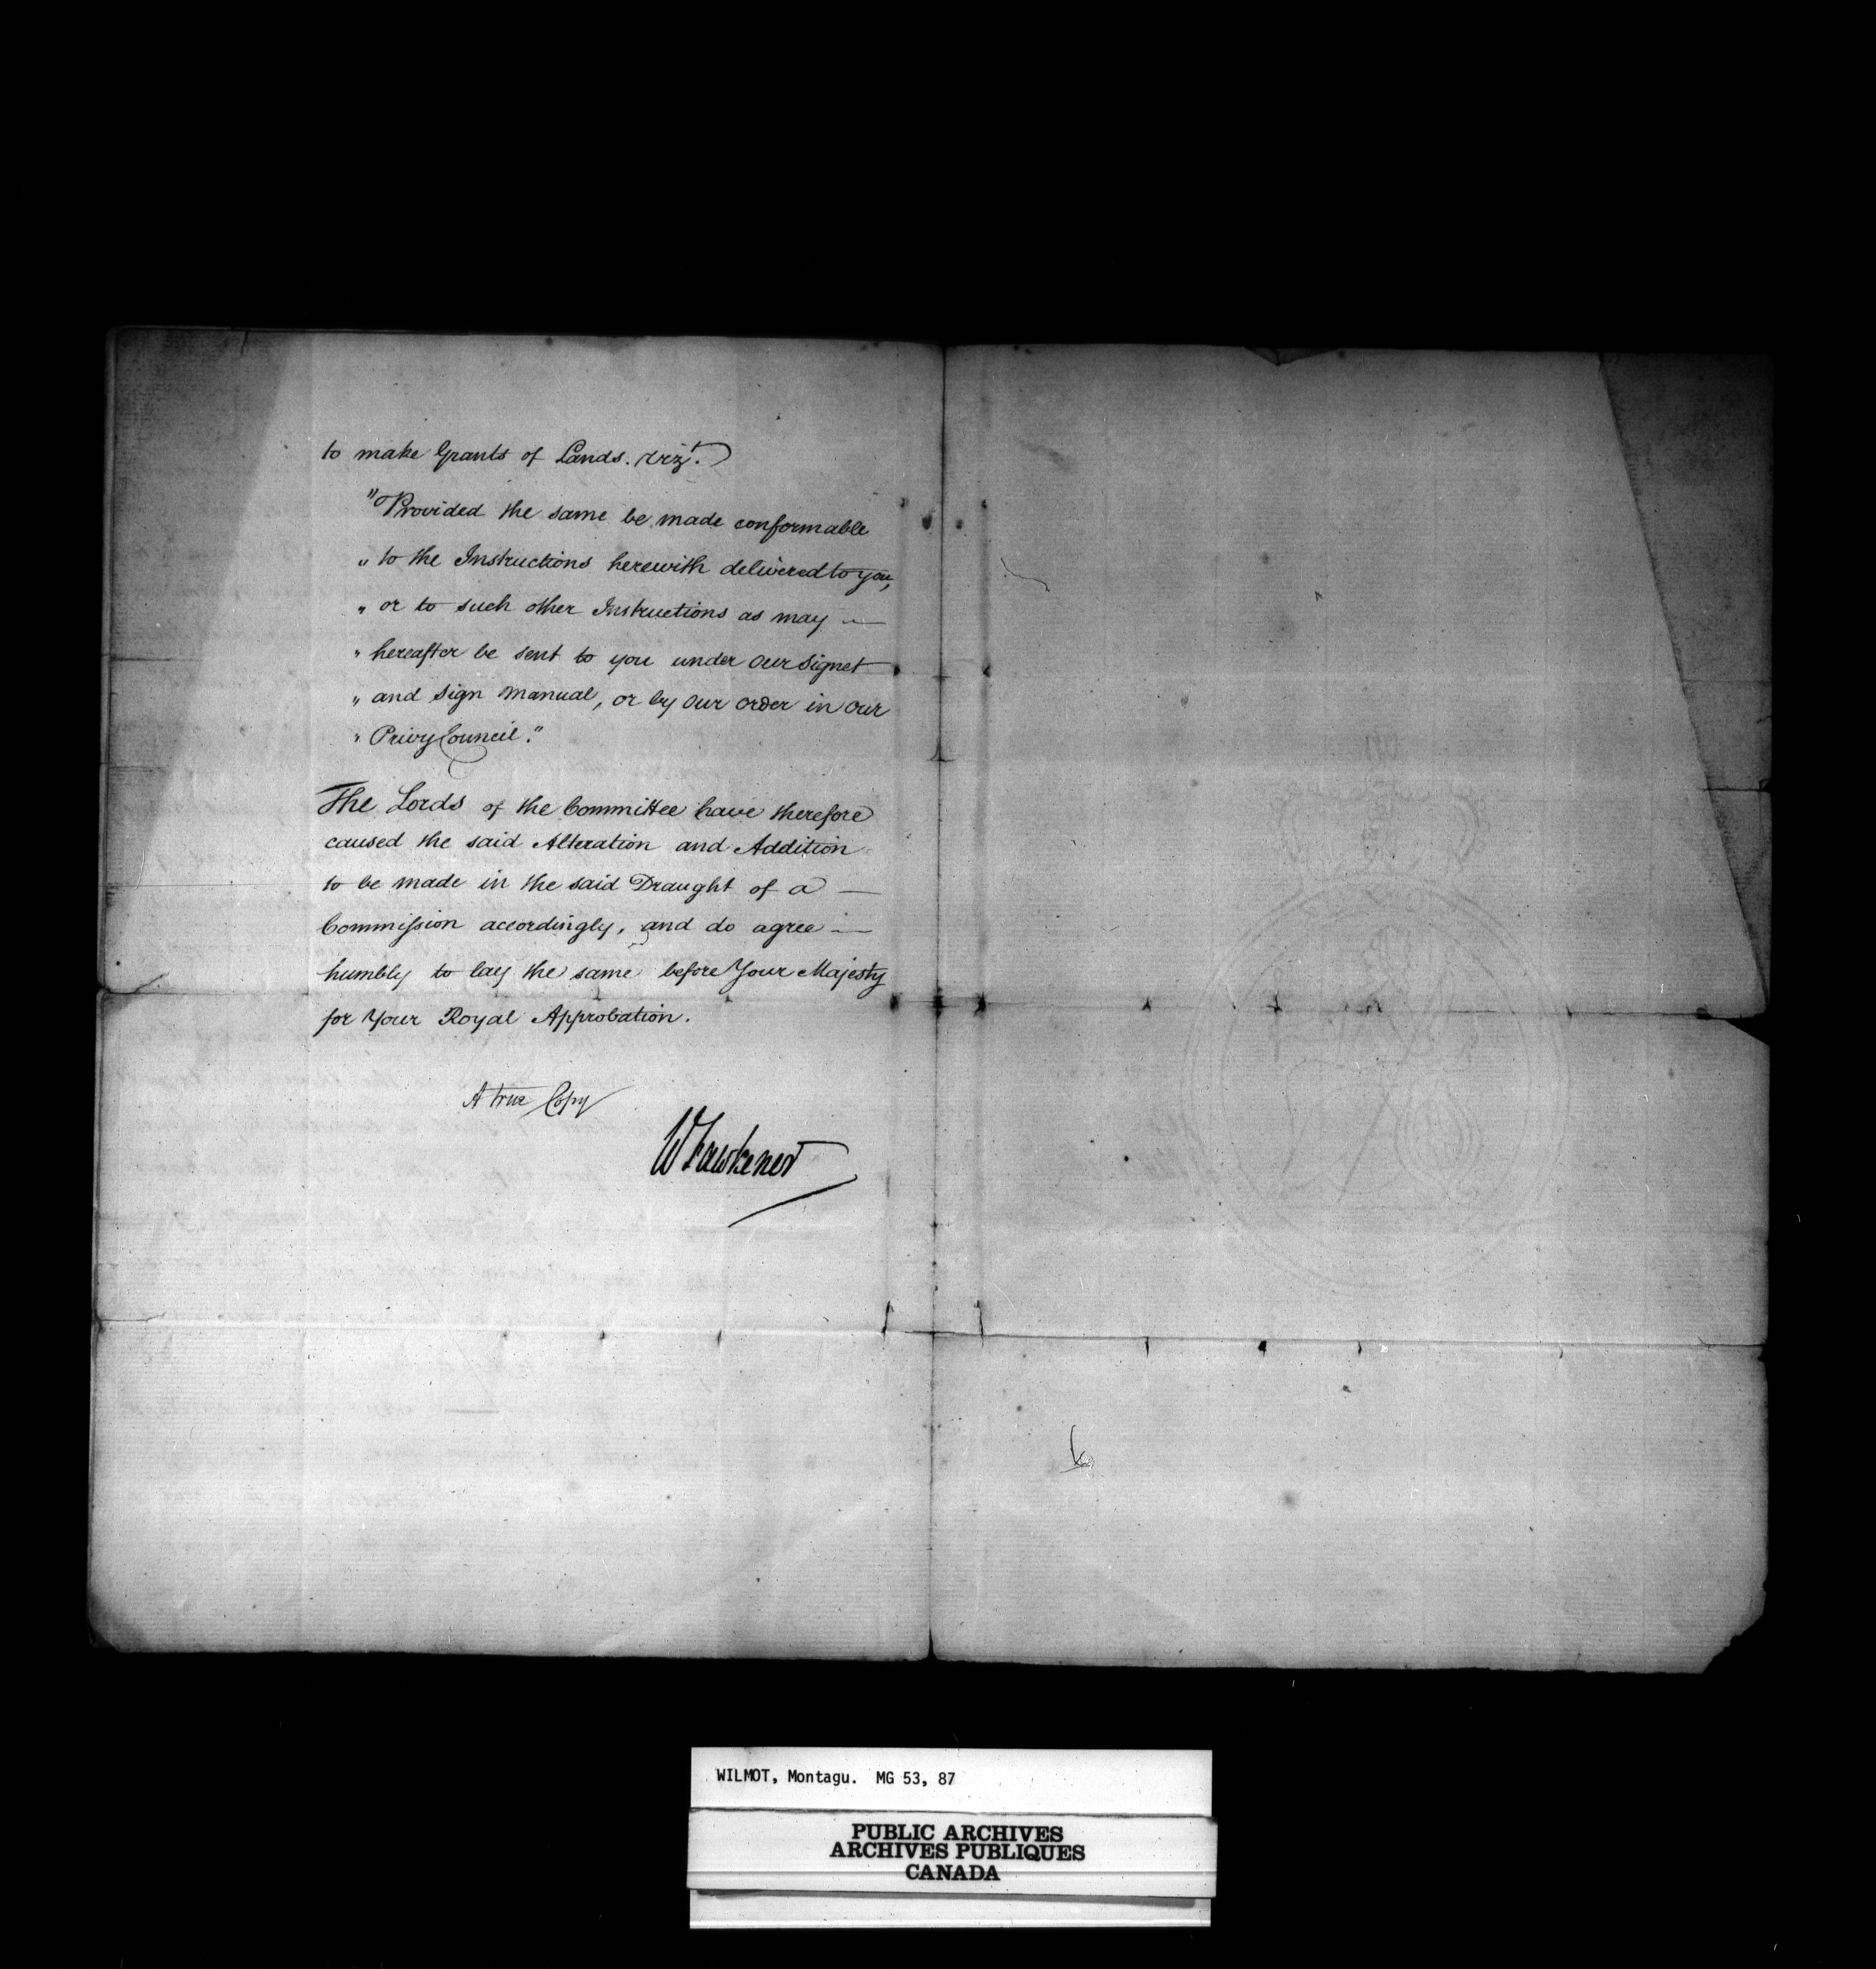 to make Grants of Lands. vizt.
"Provided the same be made conformable
" to the Instructions herewith delivered to you,
" or to such other Instructions as may —
" hereafter be sent to you under Our Signet
" and Sign Manual, or by Our Order in Our
" Privy Council."
The Lords of the Committee have therefore
caused the said Alteration and Addition
to be made in the said Draught of a —
Commission accordingly, and do agree —
humbly to lay the same before Your Majesty
for Your Royal Approbation.
A true Copy
W Fawkener
WILMOT, Montagu. MG 53, 87
PUBLIC ARCHIVES
ARCHIVES PUBLIQUES
CANADA